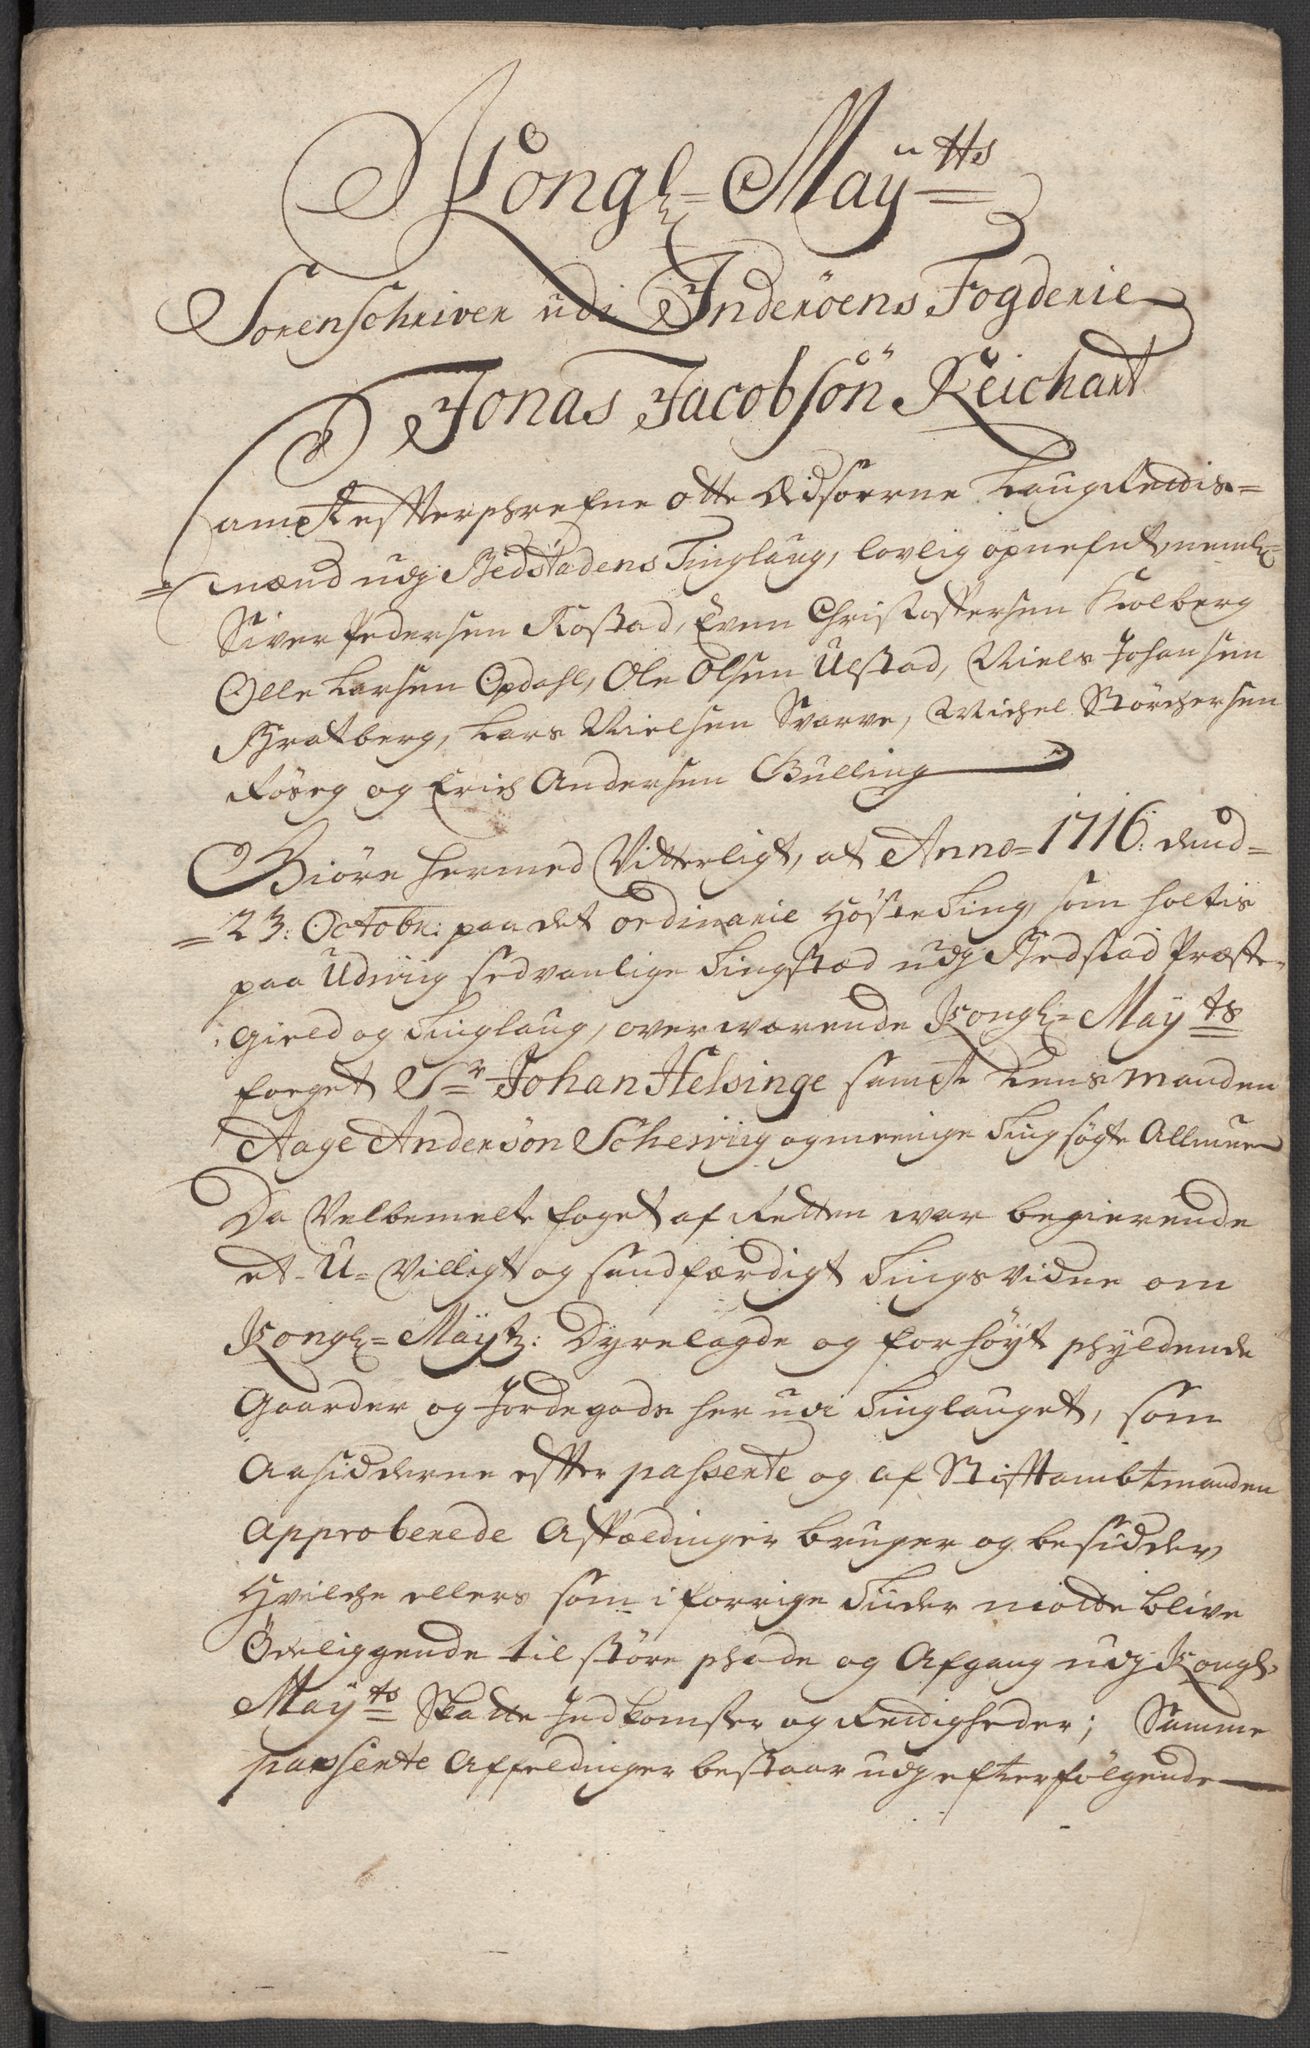 Kongl= Maÿtts
Sorenschriver udi Inderöens Fogderie
Jonas Jacobsön Reichart
Sampt efterschrefne otte Eidsoerne Laug Rettis=
mænd udj Bedstadens Tinglaug, lovlig opnefnt, neml:
Siver Pedersen Kostad, Even Christoffersen Kolberg
Olle Larsen Opdahl, Ole Olsen Ulstad, Niels Johansen
Bratberg, Lars Nielsen Svarve, Michel Störchersen
Röseg og Erich Andersen Gulling
Giöre hermed Vitterligt, at Anno= 1716: dend=
23: Octobr: paa det ordinarie Höste Ting, som holtis
paa Udvig sedvanlige Tingstad udj Bedstad Præste=
gield og Tinglaug, overwærende Kongl= Maÿts
foeget Sr Johan Helsinge sampt Lensmanden
Aage Andersön Schevig og meenige Tingsögte Allmue
Da Velbemelte foget af Retten war begierende
et U= Villigt og sandfærdigt Tingsvidne om
Kongl= Maÿtz: Dyrelagde og forhöyt schyldende
Gaarder og Jordegods her udi Tinglauget, som
Aasidderne effter passente og af Stifftambtmanden
Approberede Affældinger bruger og besidder
Hvilche ellers som i forrige Tiider motte blive
Ödeliggende til störe schade og Afgang udj Kongl:
Maÿts Skatte Indkomster og Rettigheder; Samme
passente Affeldinger bestaar udj efterfölgende